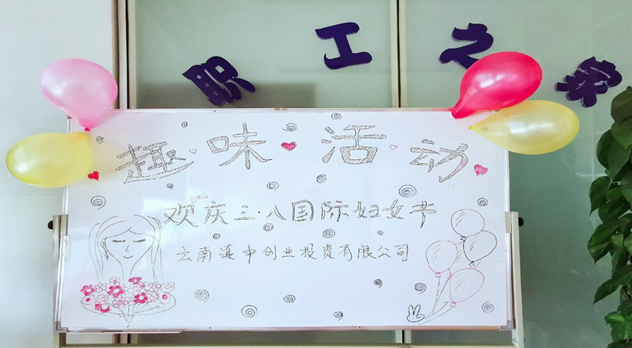 职工之家
趣味活动
欢庆三·八国际妇女节
云南滇中创业投资有限公司